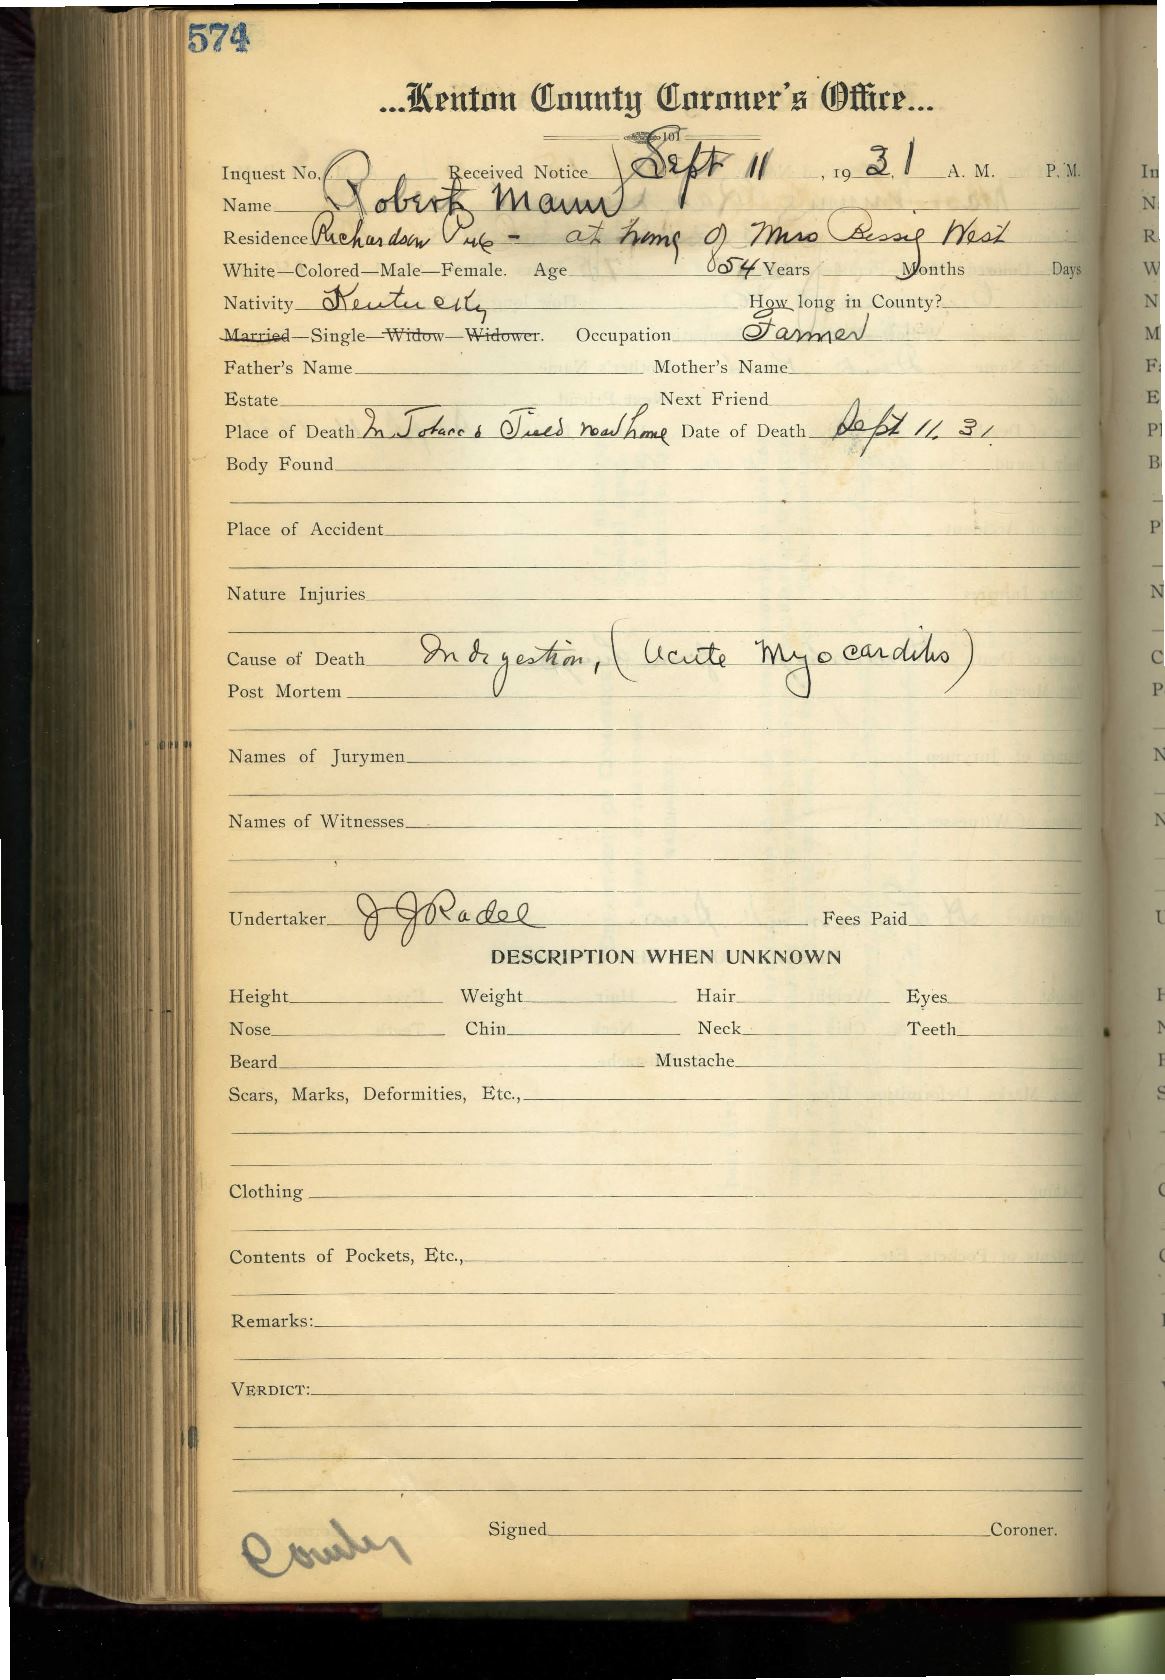 574
...Kenton County Coroner's Office...
101
Inquest No. Received Notice Sept 11, 1931 A. M. P. M.
Name Robert Mann
Residence Richardson Pike - at home of Mrs Bessie West
White—Colored—Male—Female. Age 54 Years Months Days
Nativity Kentucky How long in County?
Married—Single—Widow—Widower. Occupation Farmer
Father's Name Mother's Name
Estate Next Friend
Place of Death In Tobacco Field near home Date of Death Sept 11. 31
Body Found
Place of Accident
Nature Injuries
Cause of Death Indigestion, (Acute Myocarditis)
Post Mortem
Names of Jurymen
Names of Witnesses
Undertaker J J Radel Fees Paid
DESCRIPTION WHEN UNKNOWN
Height Weight Hair Eyes
Nose Chin Neck Teeth
Beard Mustache
Scars, Marks, Deformities, Etc.,
Clothing
Contents of Pockets, Etc.,
Remarks:
VERDICT:
Signed Coroner.
County